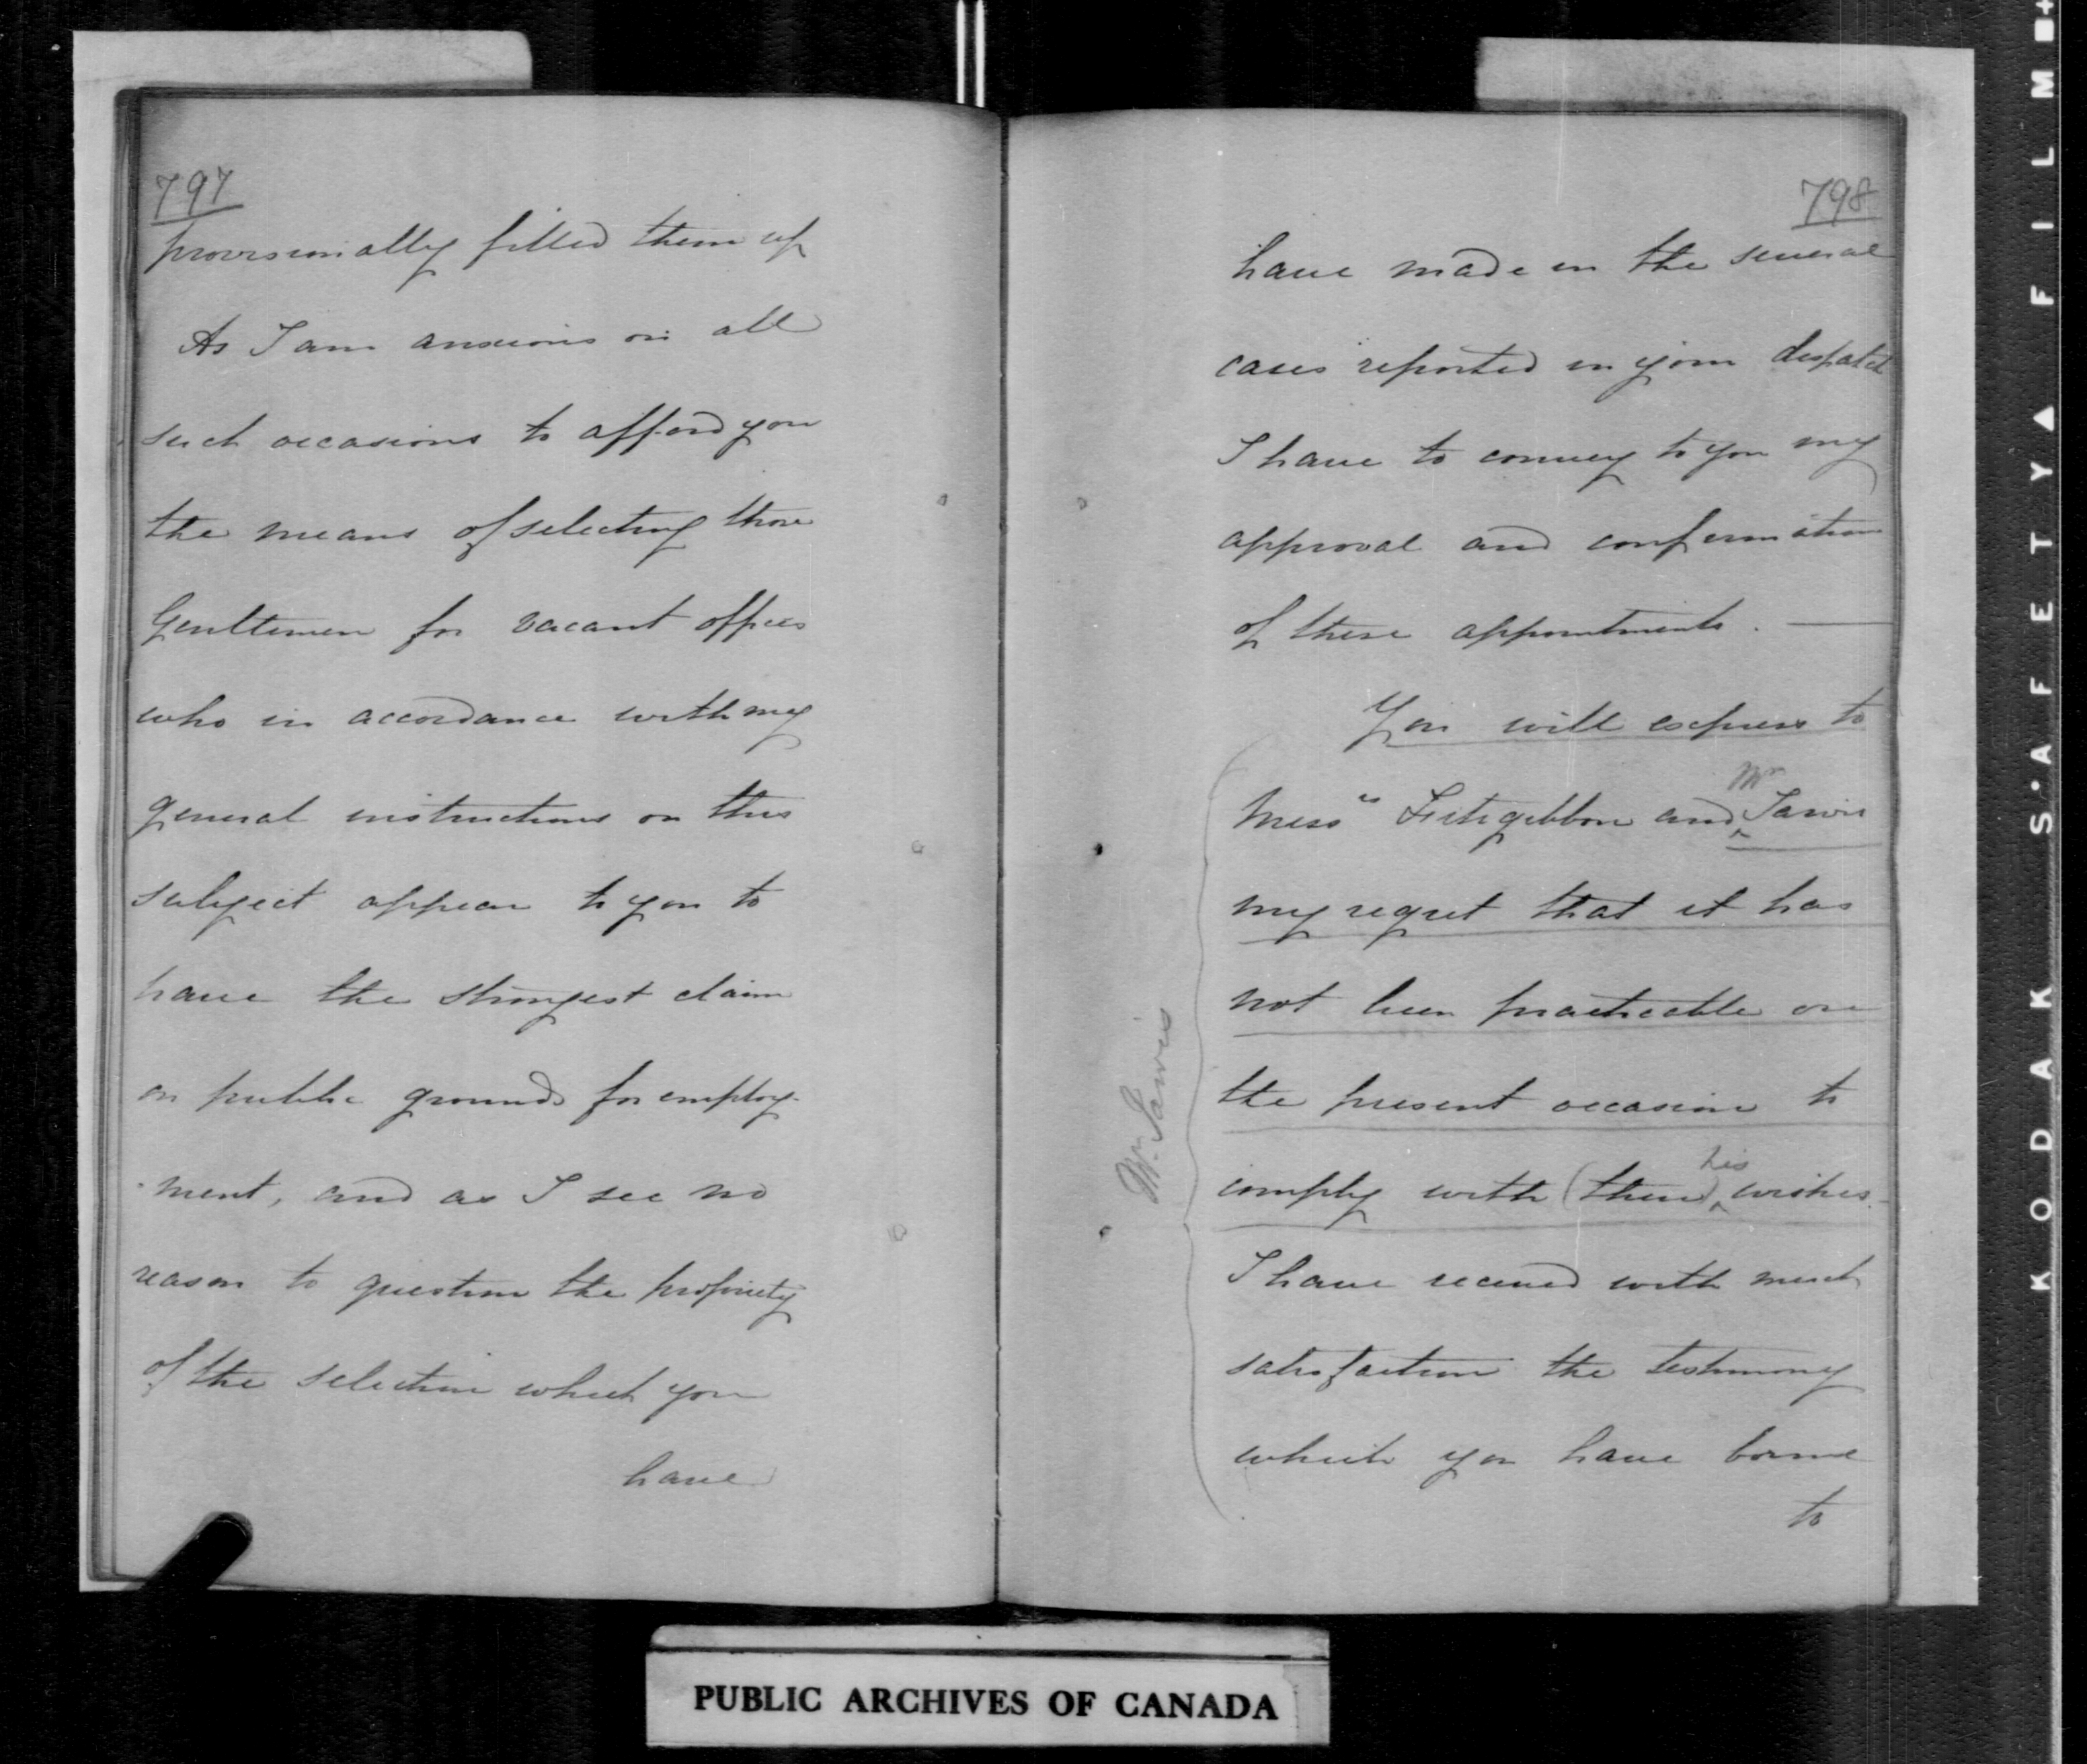 797
provisionally filled them up
As I am anxious on all
such occasions to afford you
the means of selecting those
Gentlemen for vacant offices
who in accordance with my
general instructions on this
subject appear to you to
have the strongest claim
on public grounds for employ-
-ment, and as I see no
reason to question the propriety
of the selection which you
have
798
have made in the several
cases reported in your despatch
I have to convey to you my
approval and confirmation
of these appointments. —
You will express to
Mr
Mess rs Fitzgibbon and ^ Jarvis
my regret that it has
not been practicable on
the present occasion to
his
comply with (their) ^ wishes.
I have received with much
satisfaction the testimony
which you have borne
to
Mr Jarvis
PUBLIC ARCHIVES OF CANADA
KODAK · SAFETY ▲ FILM